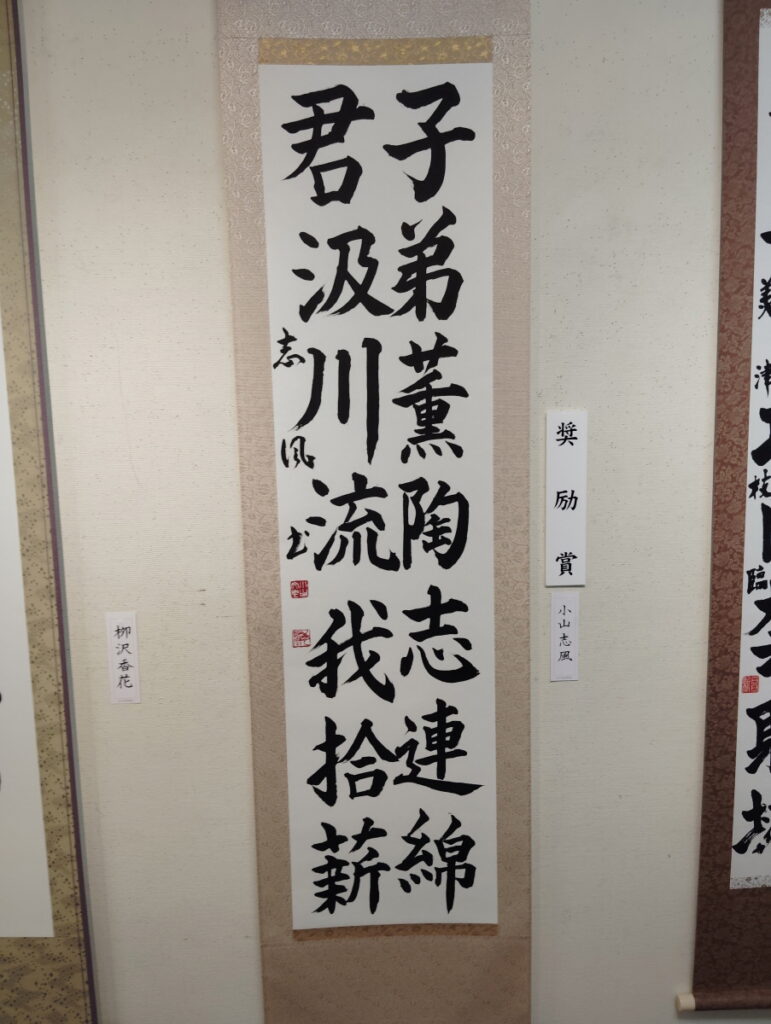 子弟薫陶志連綿
君汲川流我拾薪
志風書
奨励賞
小山志風
柳沢香花